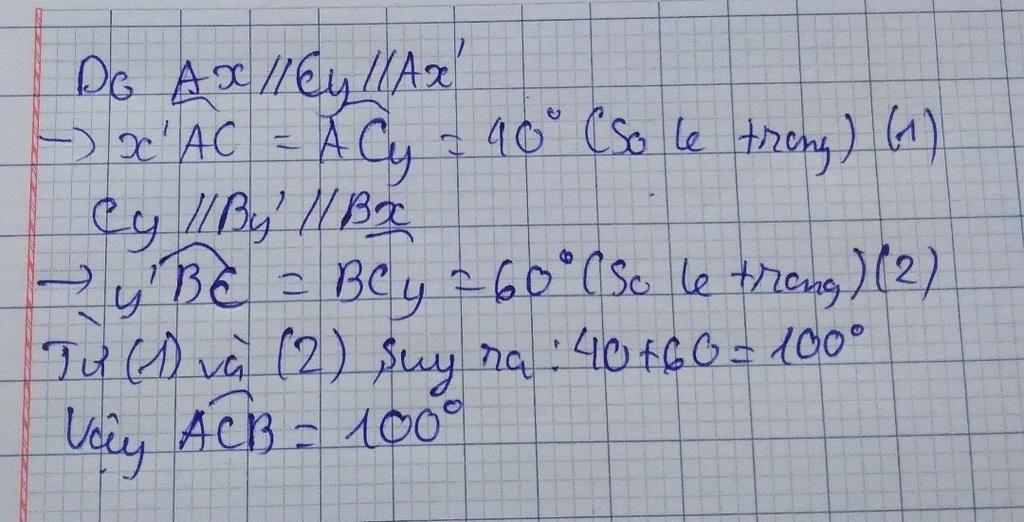 Do Ax // Cy // Ax'
→ x'AC = ACy = 40° (So le trong) (1)
Cy // By' // Bx
→ y'BC = BCy = 60° (So le trong) (2)
Từ (1) và (2) suy ra : 40+60 = 100°
Vậy ACB = 100°